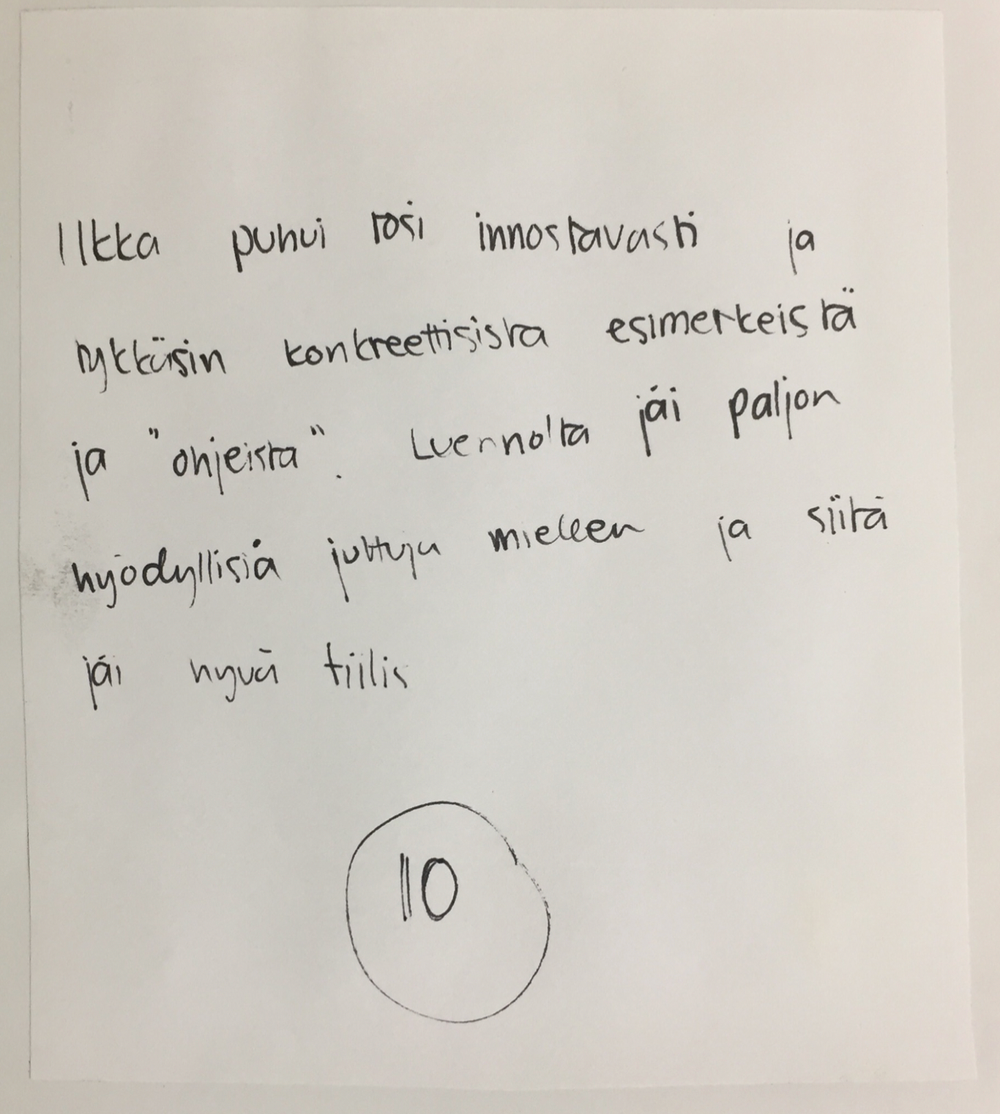 Ilkka puhui tosi innostavasti ja
tykkäsin konkreettisista esimerkeistä
ja "ohjeista". Luennolta jäi paljon
hyödyllisiä juttuja mieleen ja siitä
jäi hyvä fiilis
10